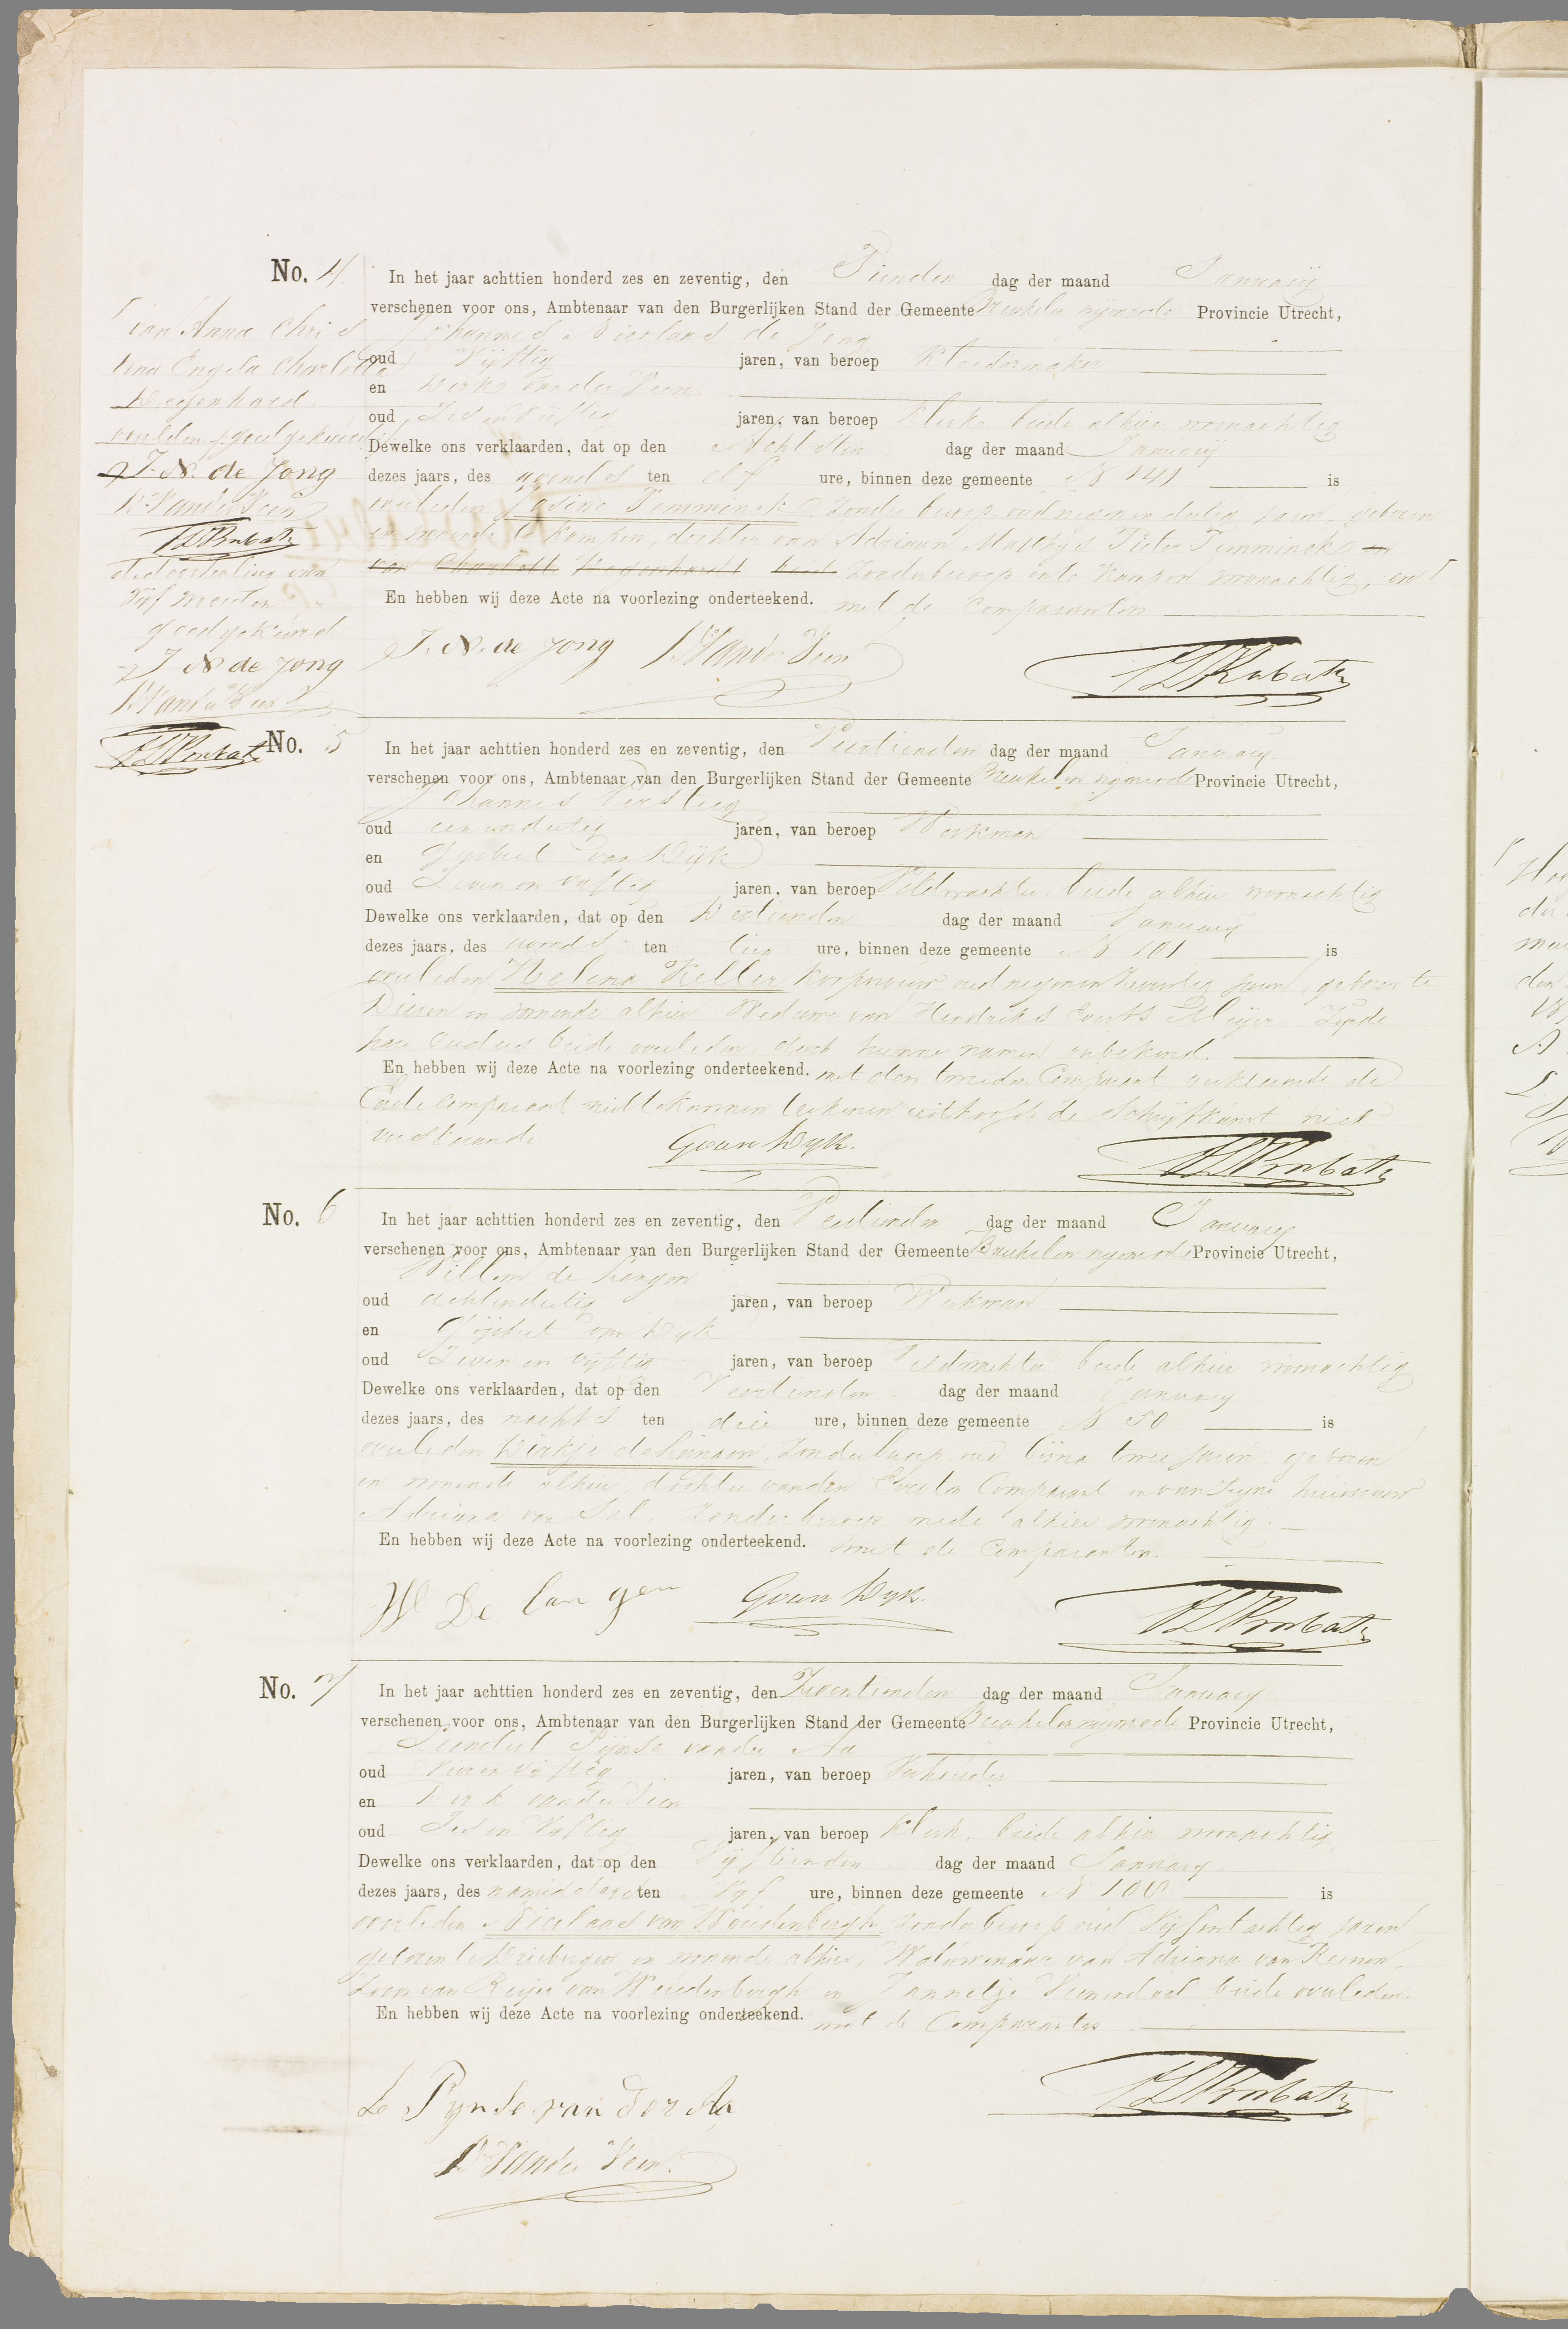 No. 4.
In het jaar achttien honderd zes en zeventig, den Tienden dag der maand Januarij
verschenen voor ons, Ambtenaar van den Burgerlijken Stand der Gemeente Breukelen nijenrode Provincie Utrecht,
Johannes Nicolaas de Jong
oud Vijftig jaren, van beroep Kleedermaker
en Derk van der Veen
oud Zes en Vijftig jaren, van beroep Klerk beide alhier woonachtig
Dewelke ons verklaarden, dat op den Achtsten dag der maand January
dezes jaars, des avonds ten elf ure, binnen deze gemeente N 141 is
overleden Josine Temminck, zonder beroep, oud negen en dertig jaren, geboren
en wonende te Kampen, dochter van Adriaan Matthys Pieter Temminck en
van Charlotte Degenhardt beide zonder beroep en te Kampen woonachtig, en
En hebben wij deze Acte na voorlezing onderteekend. met de Comparanten
J. N. de Jong D Van der Veen
van Anna Chris
tina Engela Charlotta
Degenhard.
overleden, goedgekeurd
J. N. de Jong
D. Van der Veen
de doorhaling van
Vijf woorden
goedgekeurd
J N de Jong
D. Van der Veen
No. 5
In het jaar achttien honderd zes en zeventig, den Veertienden dag der maand January
verschenen voor ons, Ambtenaar van den Burgerlijken Stand der Gemeente Breukelen nyenrode Provincie Utrecht,
Johannes Versteeg
oud een en dertig jaren, van beroep Werkman
en Gysbert van Dijk
oud Zeven en vijftig jaren, van beroep Veldwachter beide alhier woonachtig
Dewelke ons verklaarden, dat op den Dertienden dag der maand January
dezes jaars, des avonds ten tien ure, binnen deze gemeente N 101 is
overleden Helena Keller Koopvrouw oud negen en Zeventig jaren, geboren te
Dieren en wonende alhier Weduwe van Hendrikus Everts Meijer Zijnde
hare Ouders beide overleden, doch hunne namen onbekend.
En hebben wij deze Acte na voorlezing onderteekend. met den tweeden Comparant verklarende de
Eerste comparant niet te kunnen teekenen uithoofde de Schrijfkunst niet
verstaande.
G van Dyk.
No. 6
In het jaar achttien honderd zes en zeventig, den Veertienden dag der maand January
verschenen voor ons, Ambtenaar van den Burgerlijken Stand der Gemeente Breukelen nyenrode Provincie Utrecht,
Willem de Langen
oud achtendertig jaren, van beroep Werkman
en Gijsbert van Dijk
oud Zeven en vijftig jaren, van beroep Veldwachter beide alhier woonachtig
Dewelke ons verklaarden, dat op den Veertienden dag der maand January
dezes jaars, des nachts ten drie ure, binnen deze gemeente N 50 is
overleden Dirkje de Langen, Zonder beroep, oud bijna twee jaren geboren
en wonende alhier, dochter van den Eersten Comparant en van Zijne huisvrouw
Adriana van Sal. Zonder beroep mede alhier woonachtig.
En hebben wij deze Acte na voorlezing onderteekend. met de Comparanten.
W De Langen G van Dyk.
No. 7
In het jaar achttien honderd zes en zeventig, den Zeventienden dag der maand January
verschenen voor ons, Ambtenaar van den Burgerlijken Stand der Gemeente Breukelen nyenrode Provincie Utrecht,
Leendert Pijnse van der Aa
oud Vier en vijftig jaren, van beroep
en Derk van der Veen
oud Zes en Vijftig jaren, van beroep Klerk. beide alhier woonachtig
Dewelke ons verklaarden, dat op den Vijftienden dag der maand January
dezes jaars, des namiddags ten Vijf ure, binnen deze gemeente N 108 is
overleden Nicolaas van Woudenbergh, zonder beroep oud Vijf en tachtig jaren
geboren te Driebergen en wonende alhier, Weduwenaar van Adriana van Reenen.
Zoon van Reijer van Woudenbergh en Jannetje Veenendaal beide overleden.
En hebben wij deze Acte na voorlezing onderteekend. met de Comparanten
L Pynse van der Aa
D Van der Veen.